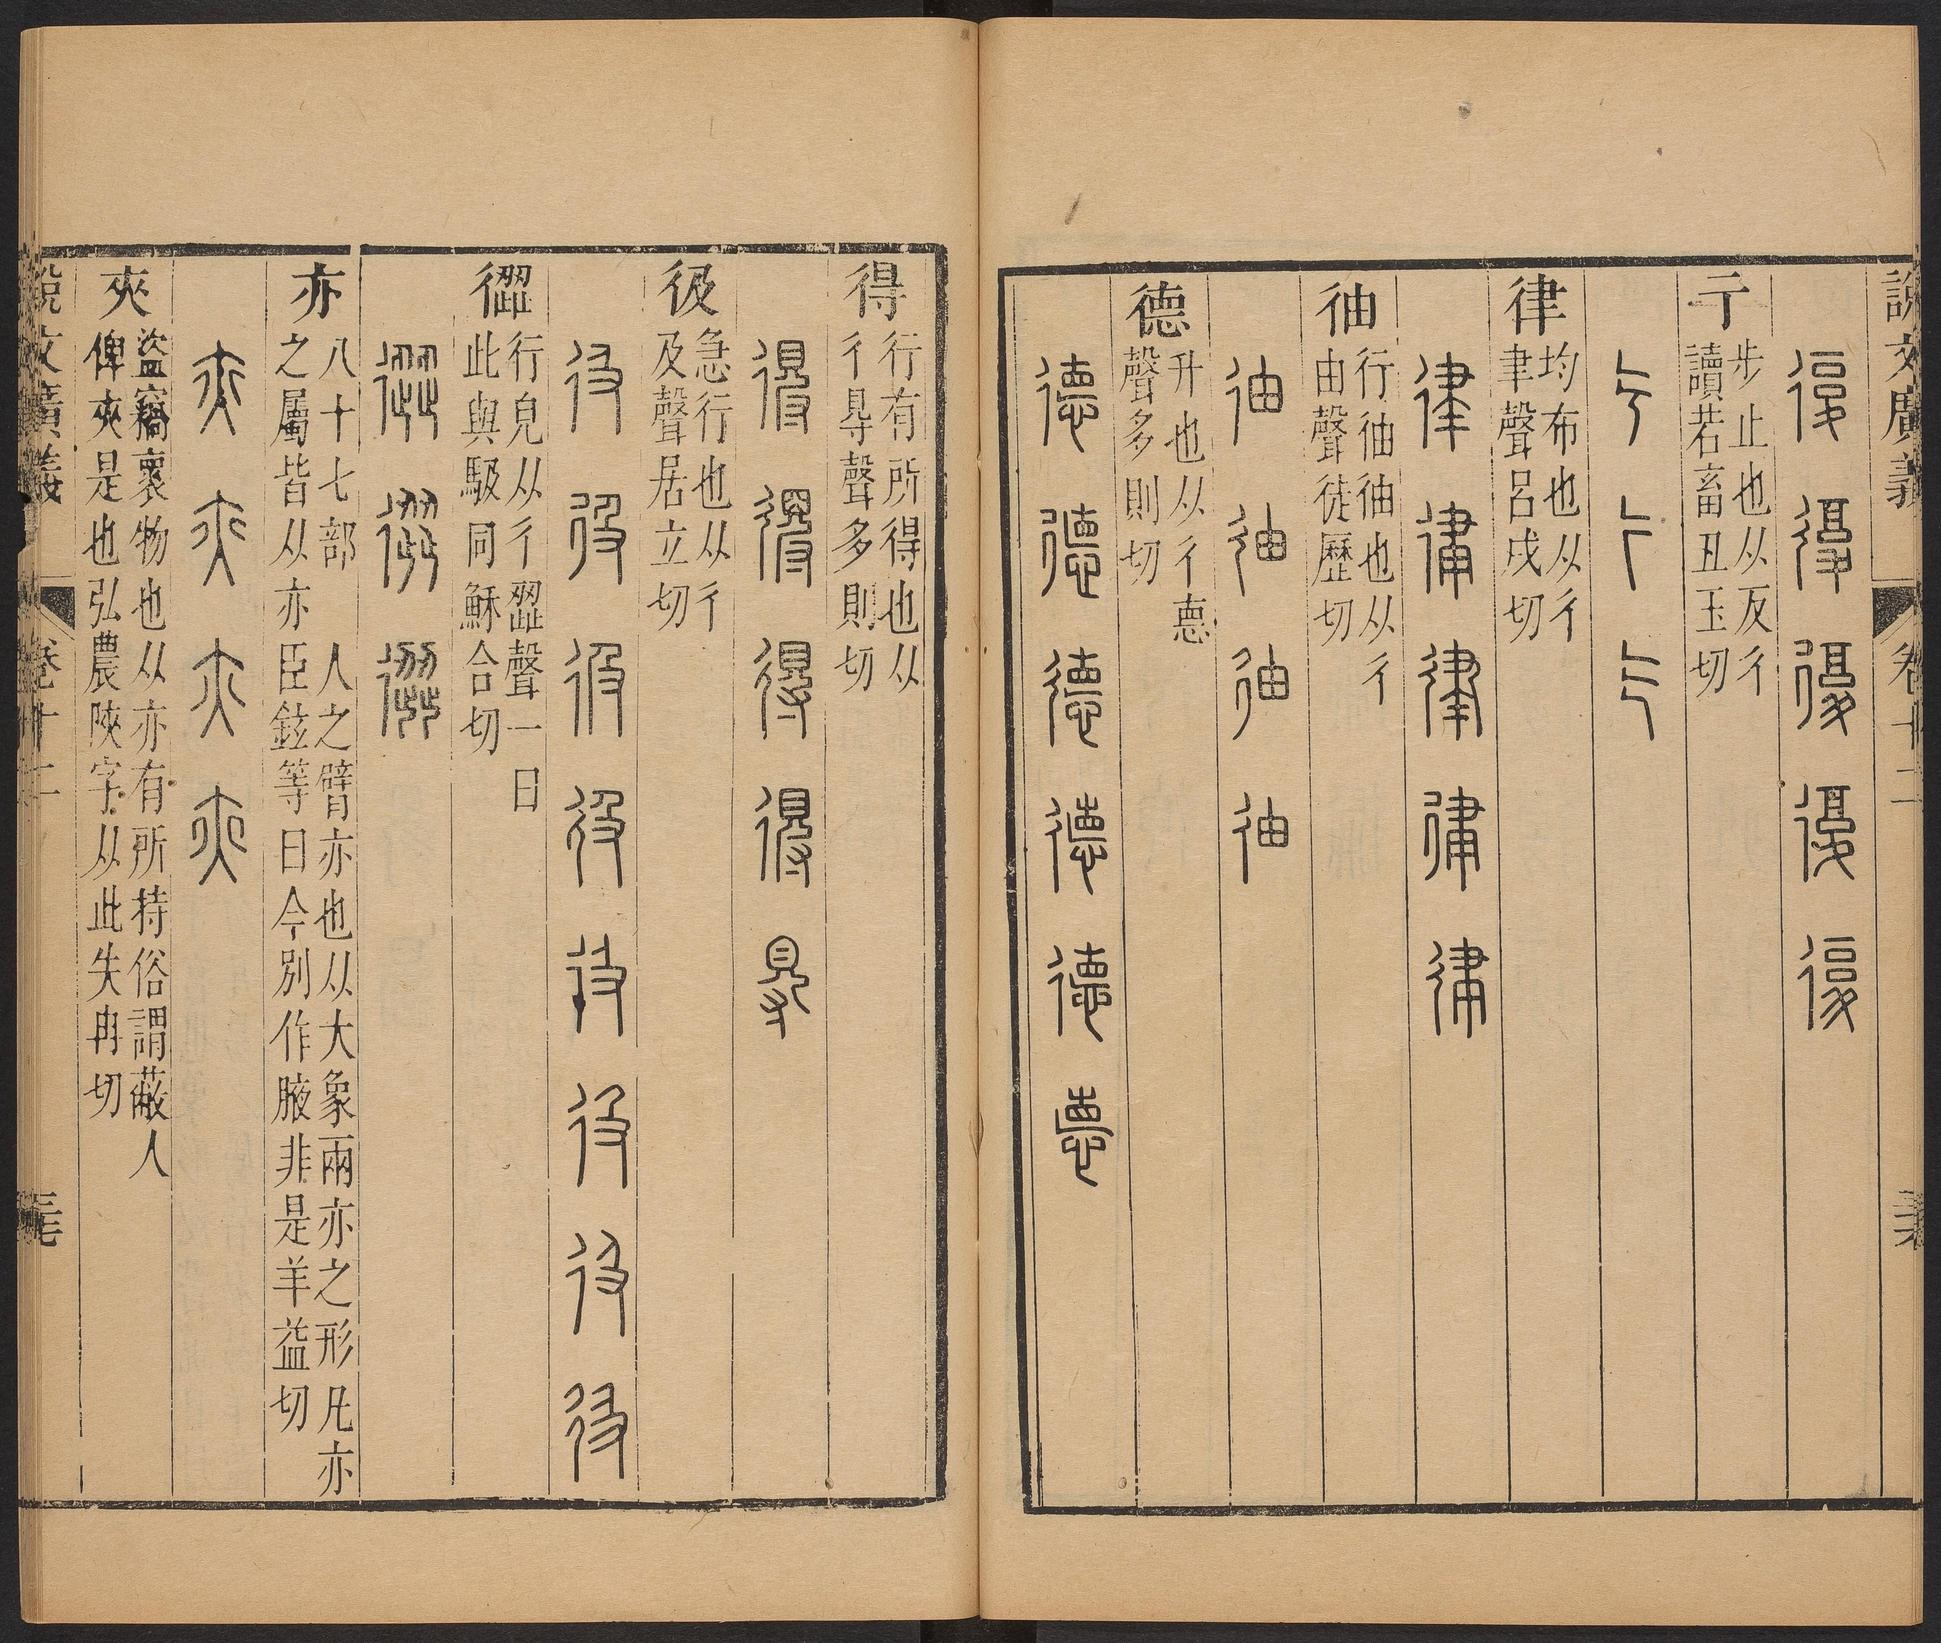 說文廣義
卷十二
亍
步止也从反彳
讀若畜丑玉切
律
均布也从彳
聿聲呂戌切
律律律律律
㣙
行㣙㣙也从彳
由聲徒歷切
㣙㣙㣙㣙
德
升也从彳悳
聲多則切
德德德德德悳
得
行有所得也从
彳㝵聲多則切
得得得得㝵
彶
急行也从彳
及聲居立切
彶彶彶彶彶彶彶彶
行皃从彳歰聲一曰
此與馺同穌合切
亦
八十七部 人之臂亦也从大象兩亦之形凡亦
之屬皆从亦 臣鉉等曰今別作腋非是羊益切
㚒
盜竊褱物也从亦有所持俗謂蔽人
俾㚒是也弘農陝字从此失冉切
說文廣義
卷十二